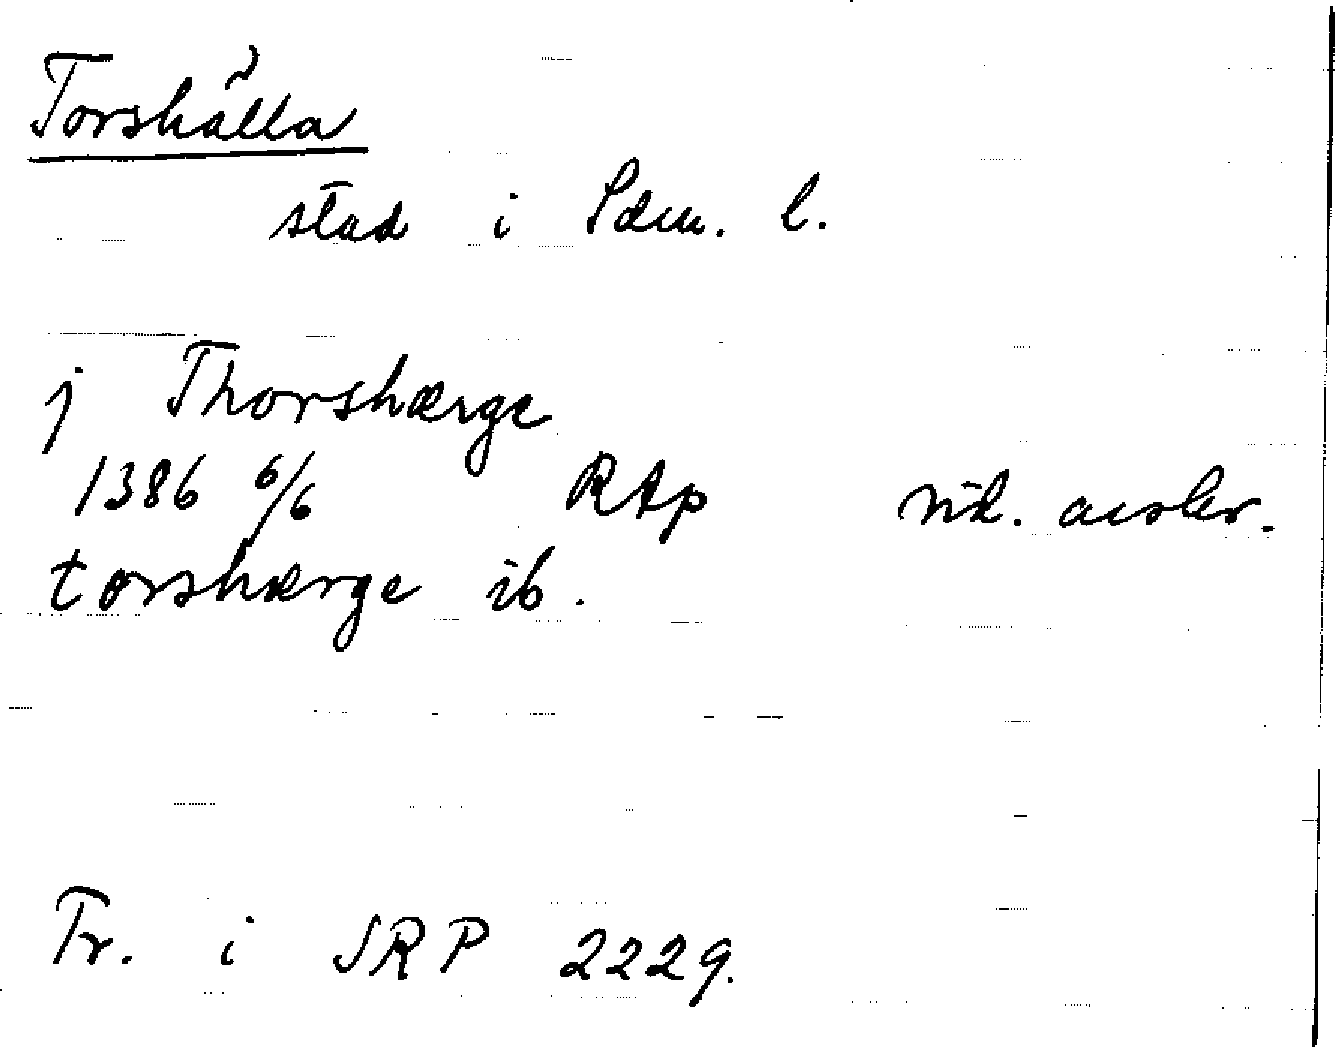 Torshälla
stad i Sdm. l.
j Thorshærge
1386 6/6 RAp vid. avskr.
torshærge ib.
Tr. i SRP 2229.